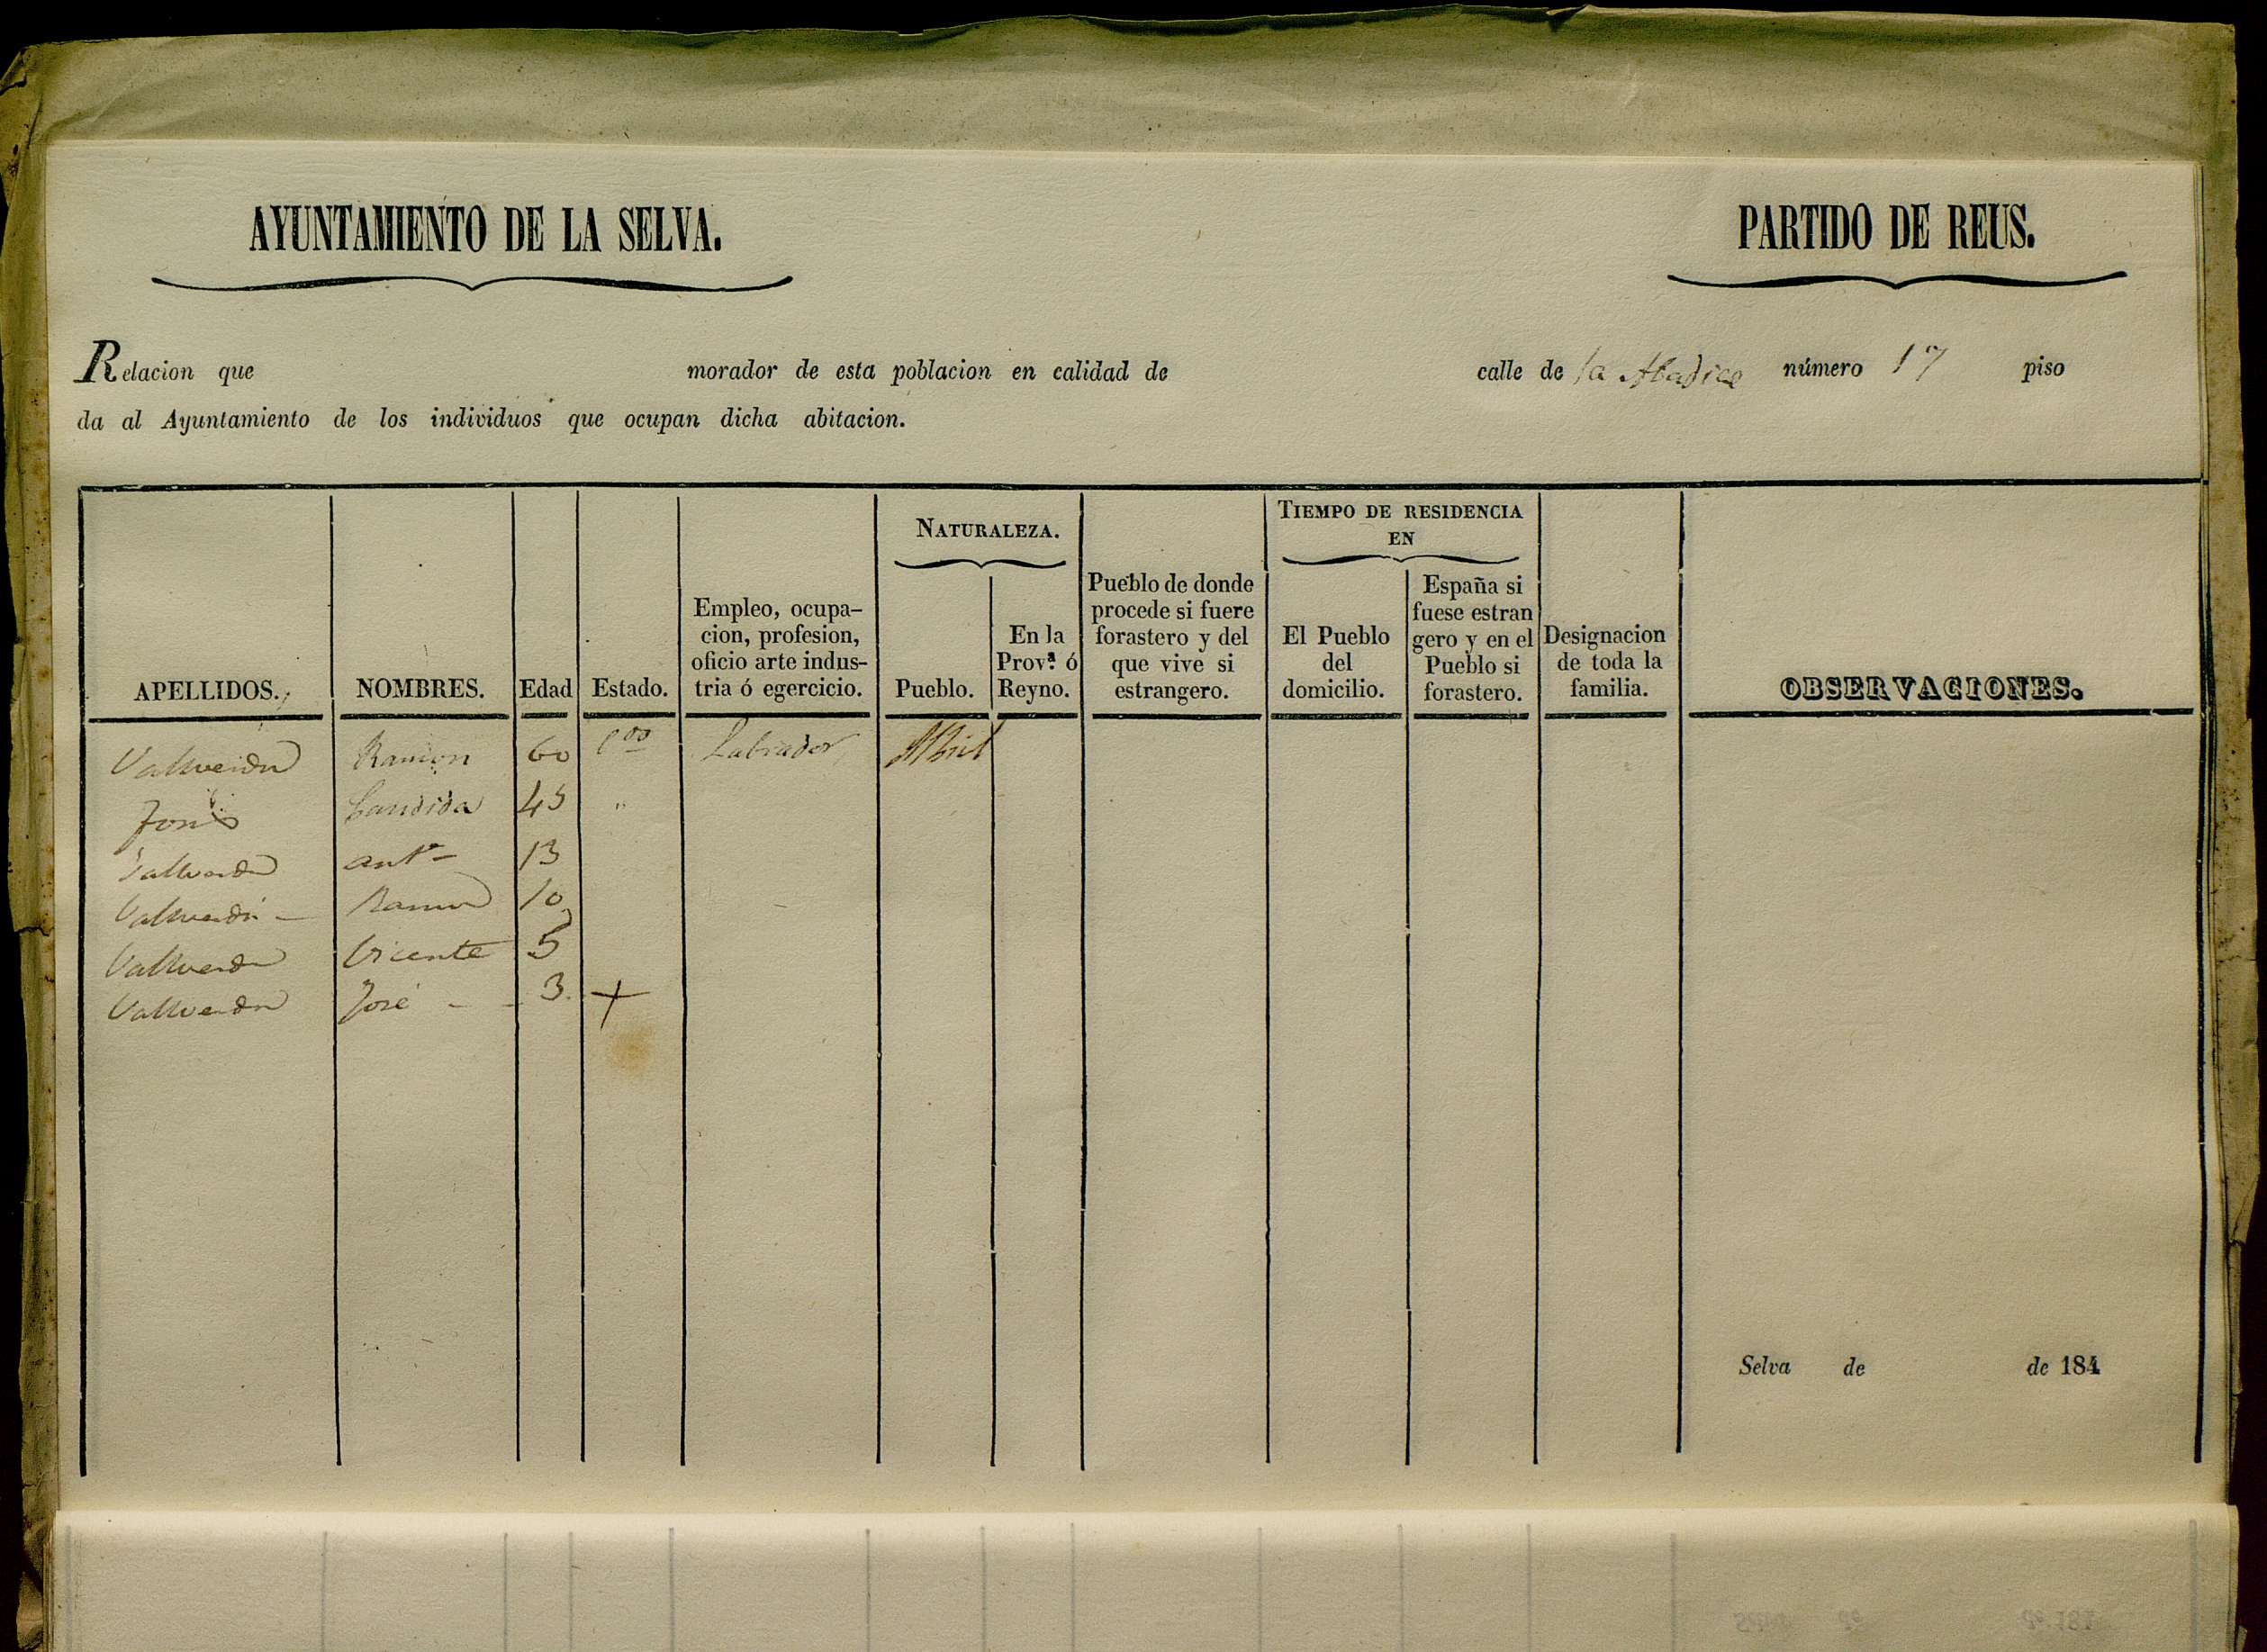 AYUNTAMIENTO DE LA SELVA.
PARTIDO DE REUS.
Relacion que morador de esta poblacion en calidad de calle de la Abadia número 17 piso
da al Ayuntamiento de los individuos que ocupan dicha abitacion.
NATURALEZA.
TIEMPO DE RESIDENCIA
EN
APELLIDOS.
NOMBRES.
Edad
Estado.
Empleo, ocupa-
cion, profesion,
oficio arte indus-
tria ó egercicio.
Pueblo.
En la
Prov.ª ó
Reyno.
Pueblo de donde
procede si fuere
forastero y del
que vive si
estrangero.
El Pueblo
del
domicilio.
España si
fuese estran
gero y en el
Pueblo si
forastero.
Designacion
de toda la
familia.
OBSERVACIONES.
Vallverdu Ramon 60 Labrador
Candida 45 "
Vallverdu Ant.º 13
Vallverdú Ramon 10
Vallverdu Vicente 5
Vallverdu José 3
Selva de de 184